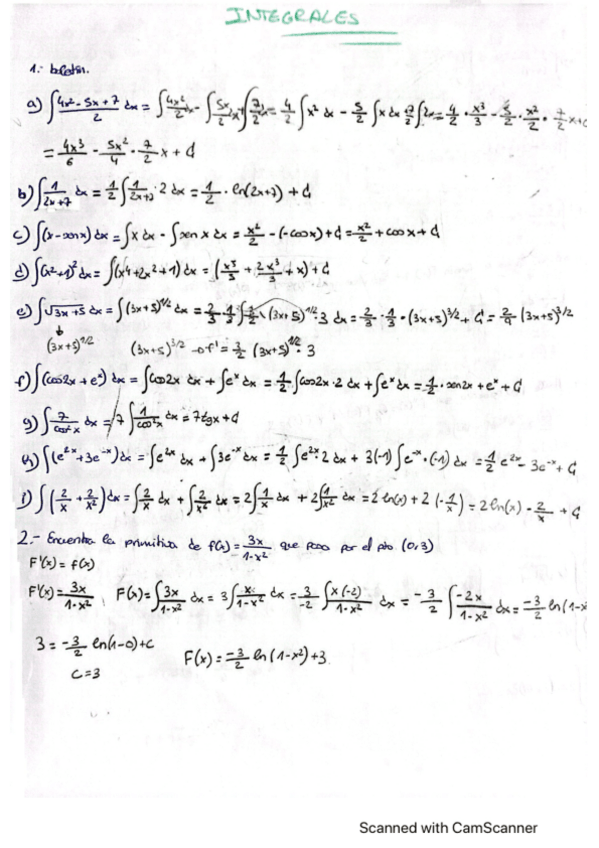 INTEGRALES
1.- boletín.
a) ∫ (4x² - 5x + 7)/2 dx = ∫ 4x²/2 dx - ∫ 5x/2 dx + ∫ 7/2 dx = 4/2 ∫ x² dx - 5/2 ∫ x dx + 7/2 ∫ dx = 4/2 · x³/3 - 5/2 · x²/2 · 7/2 x + C
= 4x³/6 - 5x²/4 · 7/2 x + C
b) ∫ 1/(2x+7) dx = 1/2 ∫ 1/(2x+7) · 2 dx = 1/2 · ln(2x+7) + C
c) ∫ (x - sen x) dx = ∫ x dx - ∫ sen x dx = x²/2 - (-cos x) + C = x²/2 + cos x + C
d) ∫ (x²+1)² dx = ∫ (x⁴ + 2x² + 1) dx = (x⁵/5 + 2x³/3 + x) + C
e) ∫ √(3x+5) dx = ∫ (3x+5)^1/2 dx = 2/3 · 1/3 ∫ 3/2 · (3x+5)^1/2 · 3 dx = 2/3 · 1/3 · (3x+5)^3/2 + C = 2/9 · (3x+5)^3/2
(3x+5)^1/2 (3x+5)^3/2 → f' = 3/2 (3x+5)^1/2 · 3
f) ∫ (cos2x + eˣ) dx = ∫ cos2x dx + ∫ eˣ dx = 1/2 · ∫ cos2x · 2 dx + ∫ eˣ dx = 1/2 · sen2x + eˣ + C
g) ∫ 7/cos²x dx = 7 ∫ 1/cos²x dx = 7 tgx + C
h) ∫ (e²ˣ + 3e⁻ˣ) dx = ∫ e²ˣ dx + ∫ 3e⁻ˣ dx = 1/2 ∫ e²ˣ 2 dx + 3(-1) ∫ e⁻ˣ · (-1) dx = 1/2 e²ˣ - 3e⁻ˣ + C
i) ∫ (2/x + 2/x²) dx = ∫ 2/x dx + ∫ 2/x² dx = 2 ∫ 1/x dx + 2 ∫ 1/x² dx = 2 ln(x) + 2 (-1/x) = 2 ln(x) - 2/x + C
2.- Encuentra la primitiva de f(x) = 3x/(1-x²) que pasa por el pto (0,3)
F'(x) = f(x)
F'(x) = 3x/(1-x²) F(x) = ∫ 3x/(1-x²) dx = 3 ∫ x/(1-x²) dx = 3/-2 ∫ x(-2)/(1-x²) dx = -3/2 ∫ -2x/(1-x²) dx = -3/2 ln(1-x
3 = -3/2 ln(1-0) + C F(x) = -3/2 ln(1-x²) + 3
C = 3
Scanned with CamScanner